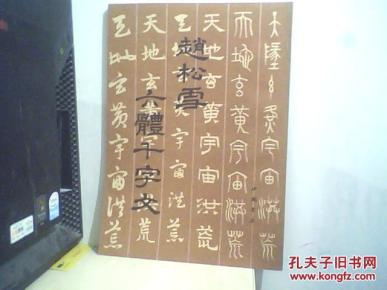 天地玄黃宇宙洪荒
天地玄黃宇宙洪荒
天地玄黃宇宙洪荒
趙松雪
天地玄黃宇宙洪荒
六體千字文
天地玄黃宇宙洪荒
天地玄黃宇宙洪荒
孔夫子旧书网